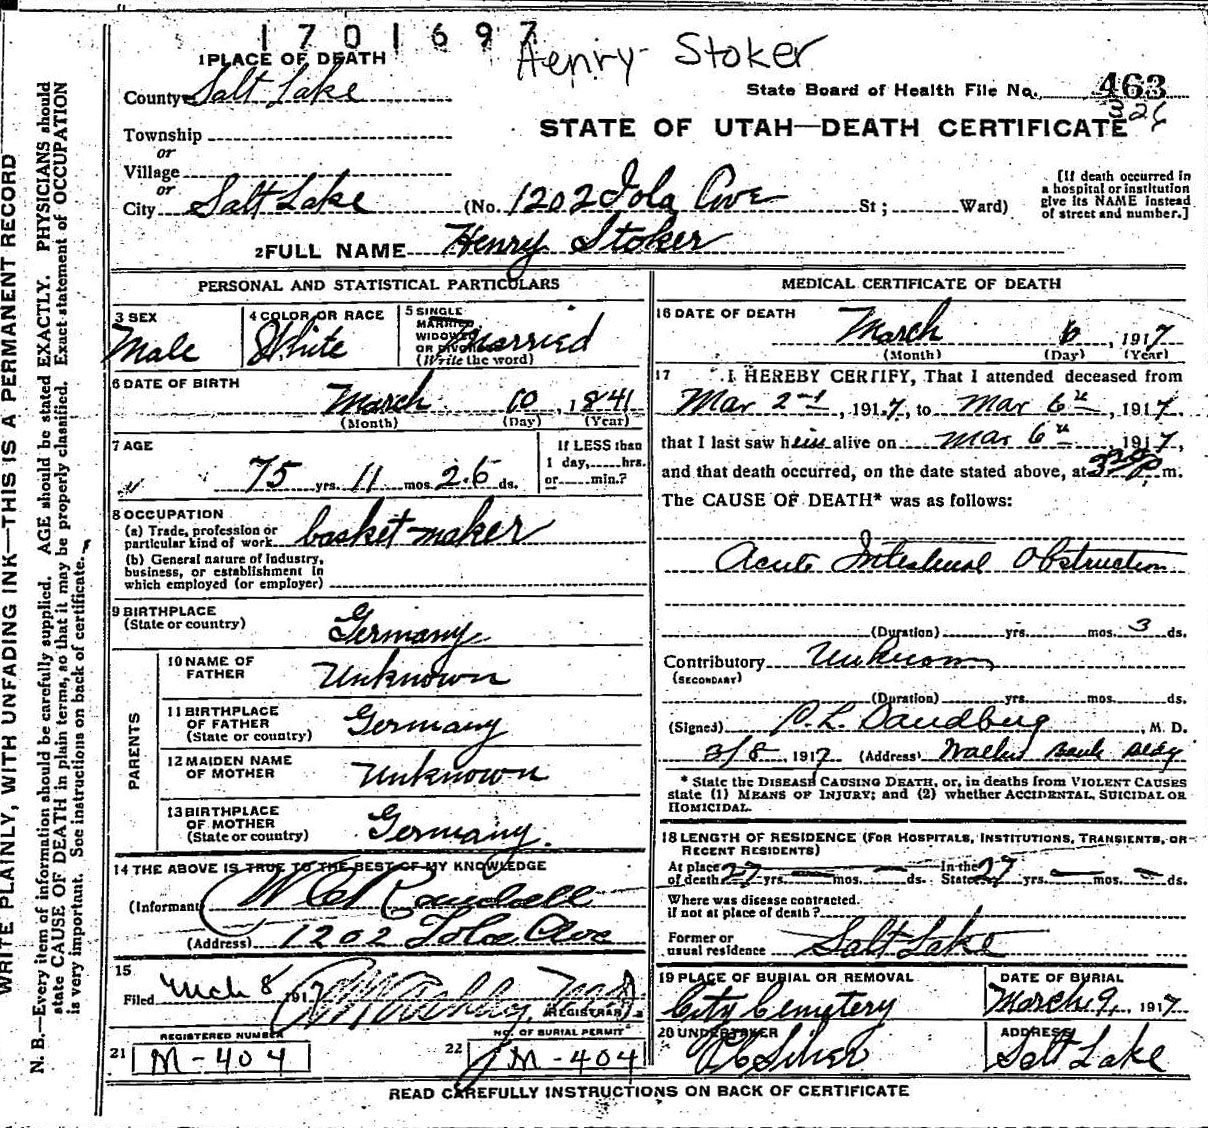 1701697
Henry Stoker
1 PLACE OF DEATH
County Salt Lake
State Board of Health File No. 463
326
Township
or
Village
or
City Salt Lake
STATE OF UTAH—DEATH CERTIFICATE
(No. 1202 Iola Ave St; Ward)
[If death occurred in
a hospital or institution
give its NAME instead
of street and number.]
2 FULL NAME Henry Stoker
PERSONAL AND STATISTICAL PARTICULARS
3 SEX
Male
4 COLOR OR RACE
White
5 SINGLE
MARRIED
WIDOWED
OR DIVORCED
(Write the word)
Married
6 DATE OF BIRTH
March 10, 1841
(Month) (Day) (Year)
7 AGE
75 yrs. 11 mos. 26 ds.
If LESS than
1 day, hrs.
or min.?
8 OCCUPATION
(a) Trade, profession or
particular kind of work basket-maker
(b) General nature of industry,
business, or establishment in
which employed (or employer)
9 BIRTHPLACE
(State or country) Germany
PARENTS
10 NAME OF
FATHER Unknown
11 BIRTHPLACE
OF FATHER
(State or country) Germany
12 MAIDEN NAME
OF MOTHER Unknown
13 BIRTHPLACE
OF MOTHER
(State or country) Germany
14 THE ABOVE IS TRUE TO THE BEST OF MY KNOWLEDGE
(Informant) Randall
(Address) 1202 Iola Ave
15
Filed Mch 8 1917
REGISTRAR
REGISTERED NUMBER
21 M-404
NO. OF BURIAL PERMIT
22 M-404
MEDICAL CERTIFICATE OF DEATH
16 DATE OF DEATH
March 6, 1917
(Month) (Day) (Year)
17 I HEREBY CERTIFY, That I attended deceased from
Mar 2nd, 1917, to Mar 6th, 1917.
that I last saw him alive on Mar 6th 1917,
and that death occurred, on the date stated above, at 320 P. m.
The CAUSE OF DEATH* was as follows:
Acute Intestinal Obstruction
(Duration) yrs. mos. 3 ds.
Contributory Unknown
(SECONDARY)
(Duration) yrs. mos. ds.
(Signed) M. D.
3/8 1917 (Address) Walker Bank Bldg
* State the DISEASE CAUSING DEATH, or, in deaths from VIOLENT CAUSES
state (1) MEANS OF INJURY; and (2) whether ACCIDENTAL, SUICIDAL OR
HOMICIDAL.
18 LENGTH OF RESIDENCE (FOR HOSPITALS, INSTITUTIONS, TRANSIENTS, OR
RECENT RESIDENTS)
At place
of death 27 yrs. — mos. — ds. In the State 27 yrs. — mos. — ds.
Where was disease contracted.
if not at place of death?
Former or
usual residence Salt Lake
19 PLACE OF BURIAL OR REMOVAL
City Cemetery
DATE OF BURIAL
March 9, 1917
20 UNDERTAKER
ADDRESS
Salt Lake
READ CAREFULLY INSTRUCTIONS ON BACK OF CERTIFICATE
WRITE PLAINLY, WITH UNFADING INK—THIS IS A PERMANENT RECORD
N. B.—Every item of information should be carefully supplied. AGE should be stated EXACTLY. PHYSICIANS should
state CAUSE OF DEATH in plain terms, so that it may be properly classified. Exact statement of OCCUPATION
is very important. See instructions on back of certificate.